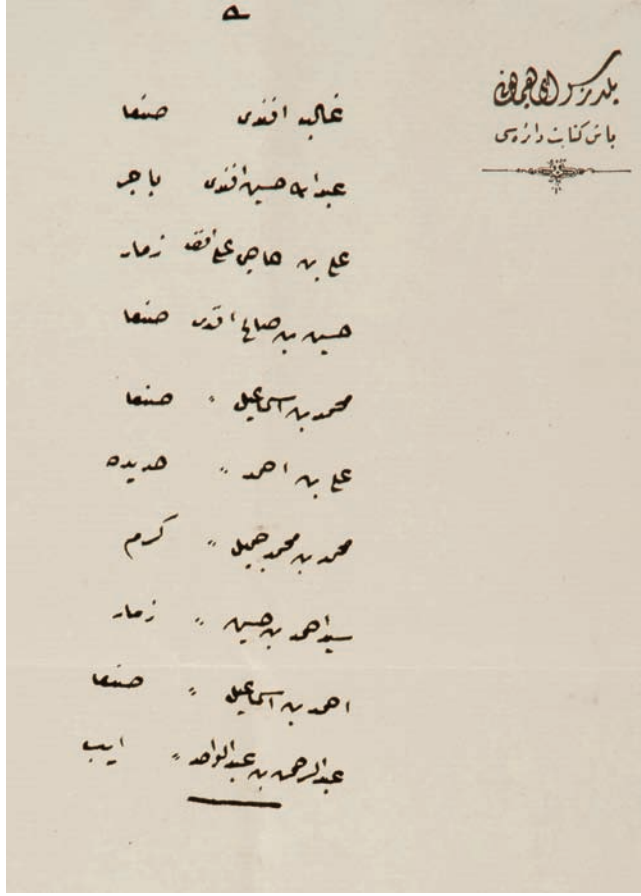 ٥
يلديز سراى همايونى
باش كتابت دائره سى
غالب افندى صنعا
عبدالله حسين افندى باجر
على بن حاجى على افندى زمار
حسين بن صالح افندى صنعا
محمد بن اسماعيل " صنعا
على بن احمد " حديده
محمد بن محمد جميل " كرم
سيد احمد بن حسين " زمار
احمد بن اسماعيل " صنعا
عبدالرحمن بن عبدالواحد " ايب